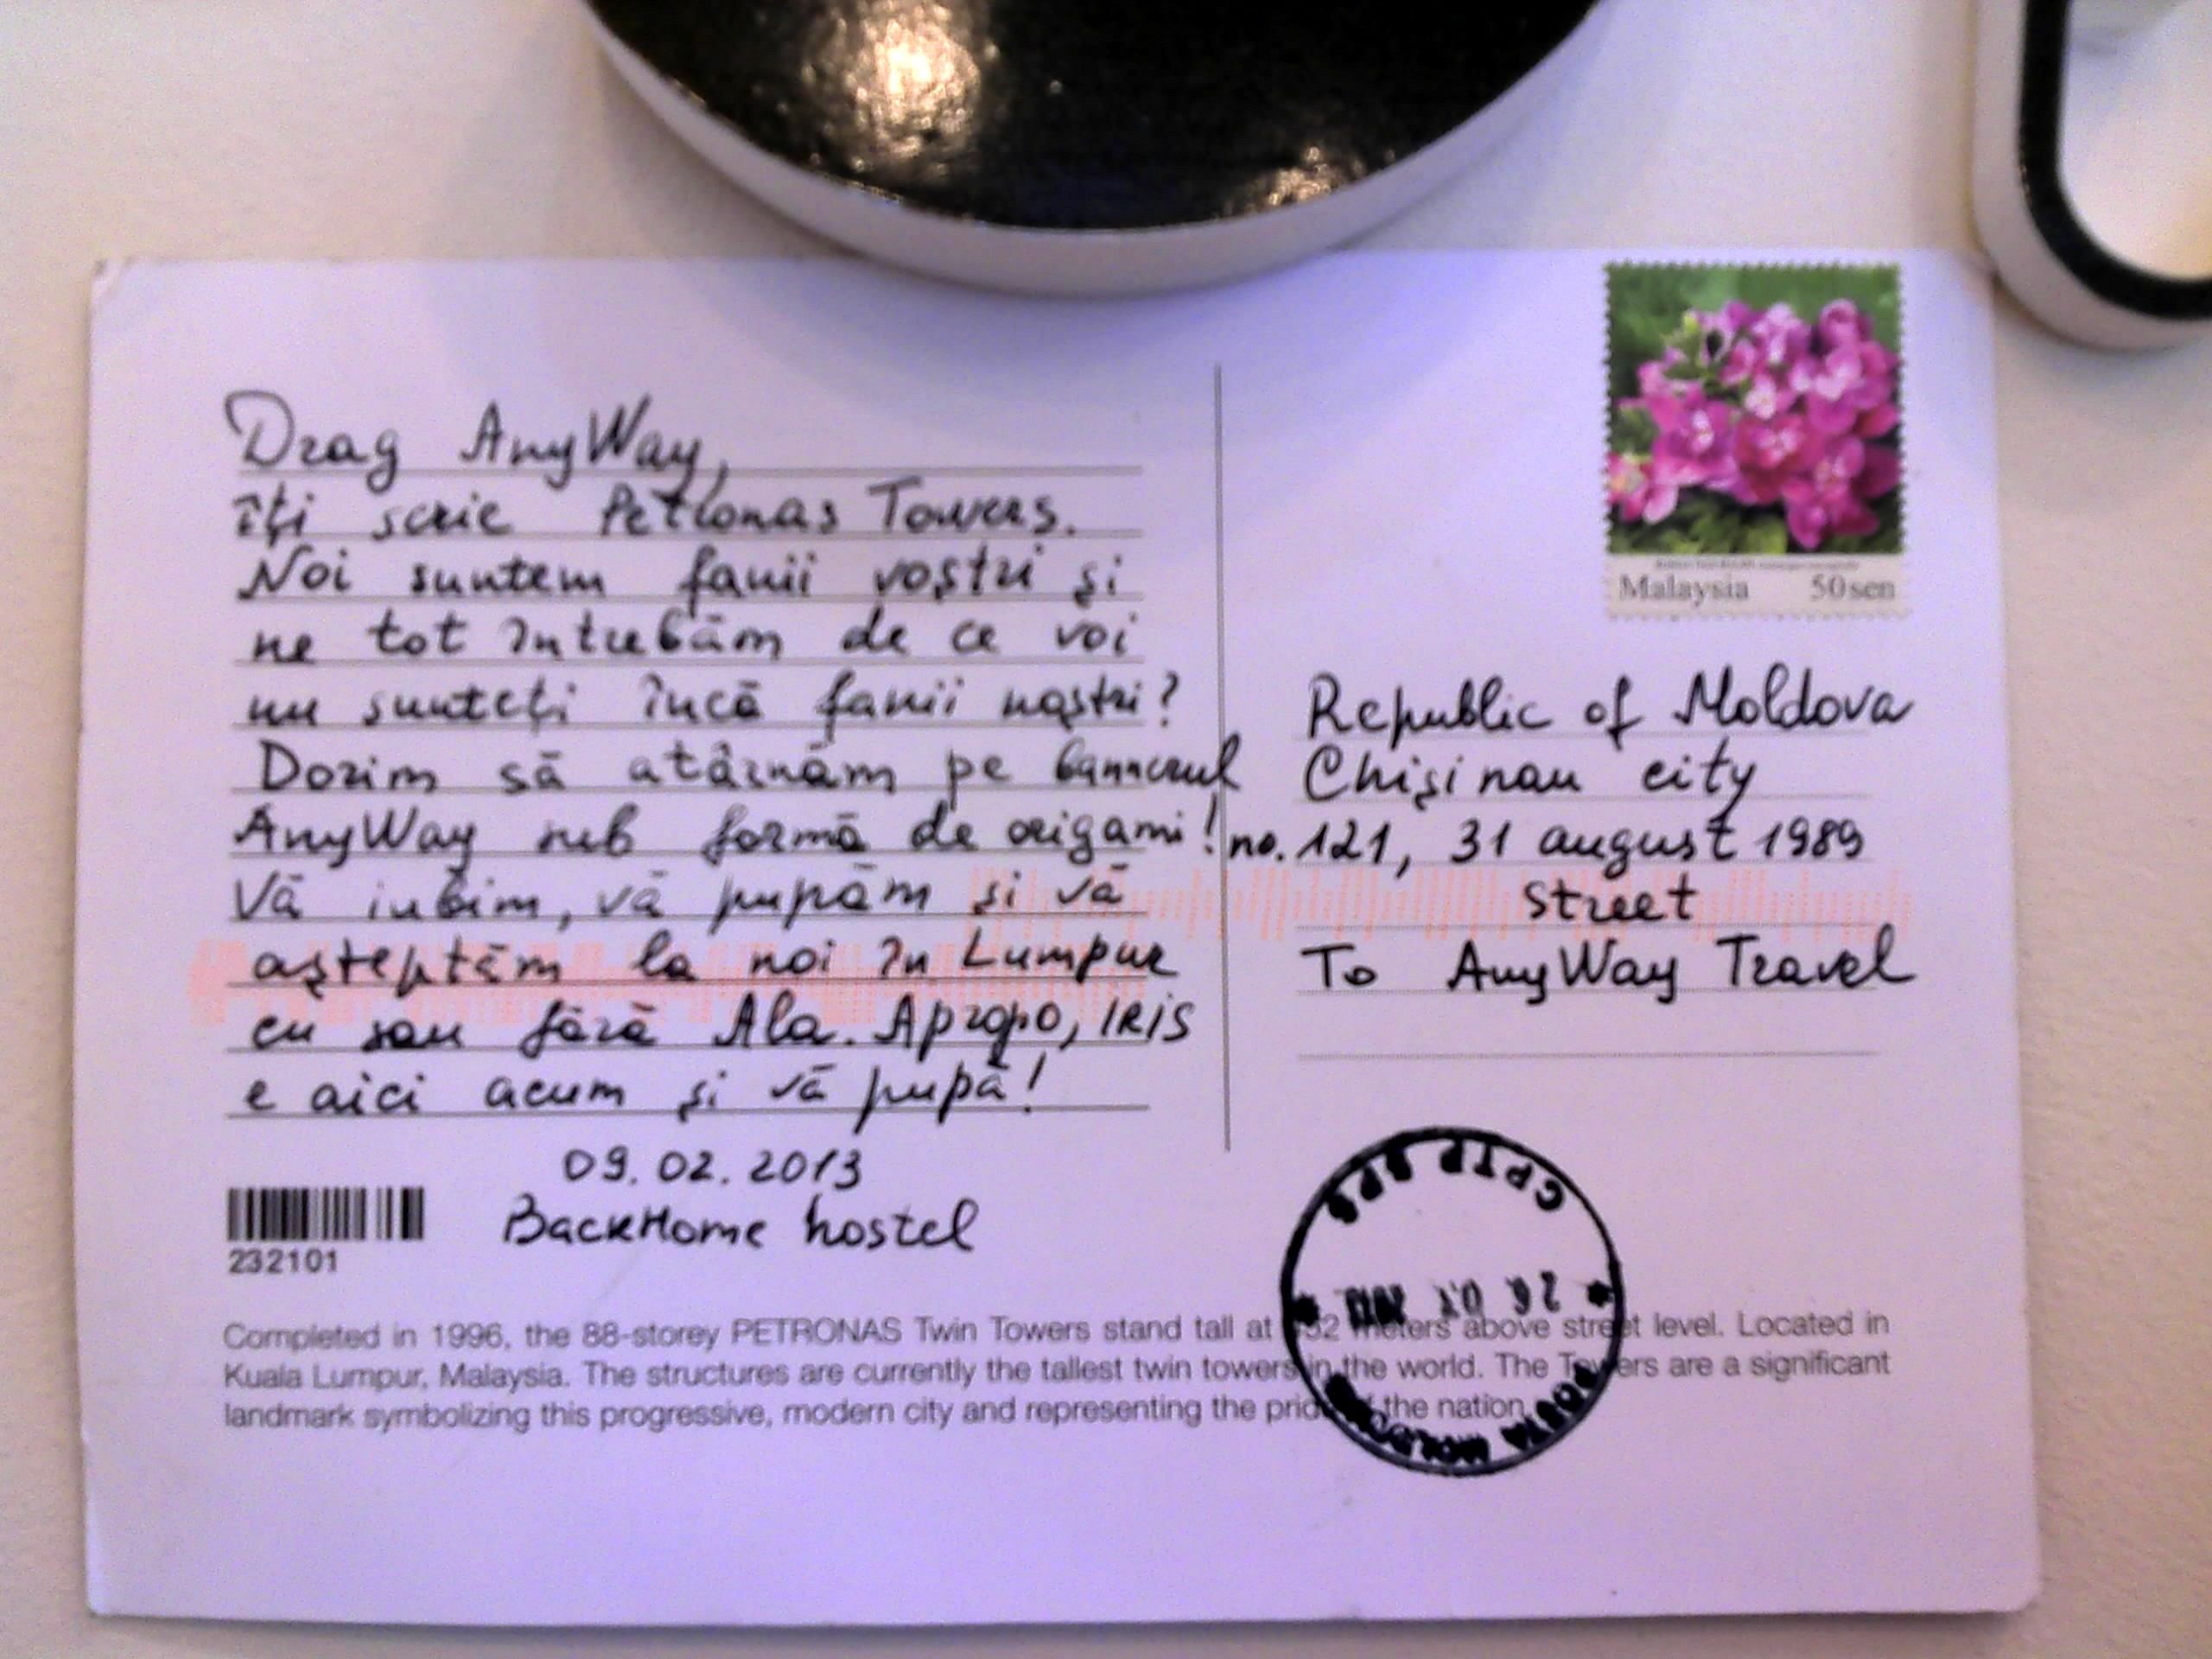 Drag AnyWay,
îți scrie Petronas Towers.
Noi suntem fanii voștri și
ne tot întrebăm de ce voi
nu sunteți încă fanii noștri?
Dorim să atârnăm pe bannerul
AnyWay sub formă de origami!
Vă iubim, vă pupăm si vă
așteptăm la noi în Lumpur
cu sau fără Ala. Apropo, IRIS
e aici acum și vă pupă!
09.02.2013
BackHome hostel
232101
Malaysia 50 sen
Republic of Moldova
Chișinau city
no. 121, 31 august 1989
street
To AnyWay Travel
Completed in 1996, the 88-storey PETRONAS Twin Towers stand tall at meters above street level. Located in
Kuala Lumpur, Malaysia. The structures are currently the tallest twin towers in the world. The Towers are a significant
landmark symbolizing this progressive, modern city and representing the pride of the nation.
POSTA MOLDOVEI